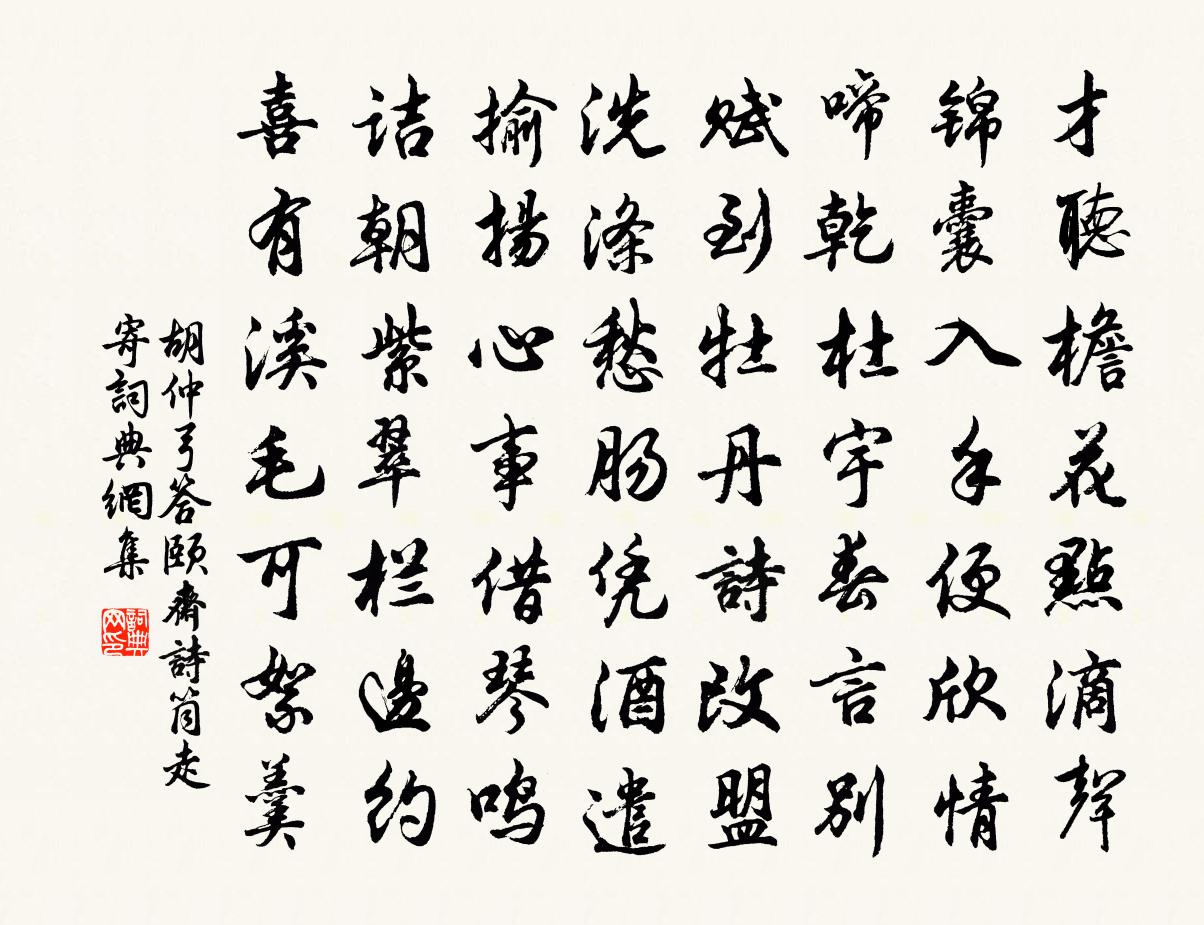 才聽檐花點滴聲
锦囊入手便欣情
啼乾杜宇春言别
赋到牡丹詩改盟
洗滌愁肠凭酒遣
揄揚心事借琴鸣
诘朝紫翠栏邊约
喜有溪毛可絮羹
胡仲弓答頤齋詩筒走
寄詞典網集
詞典网印